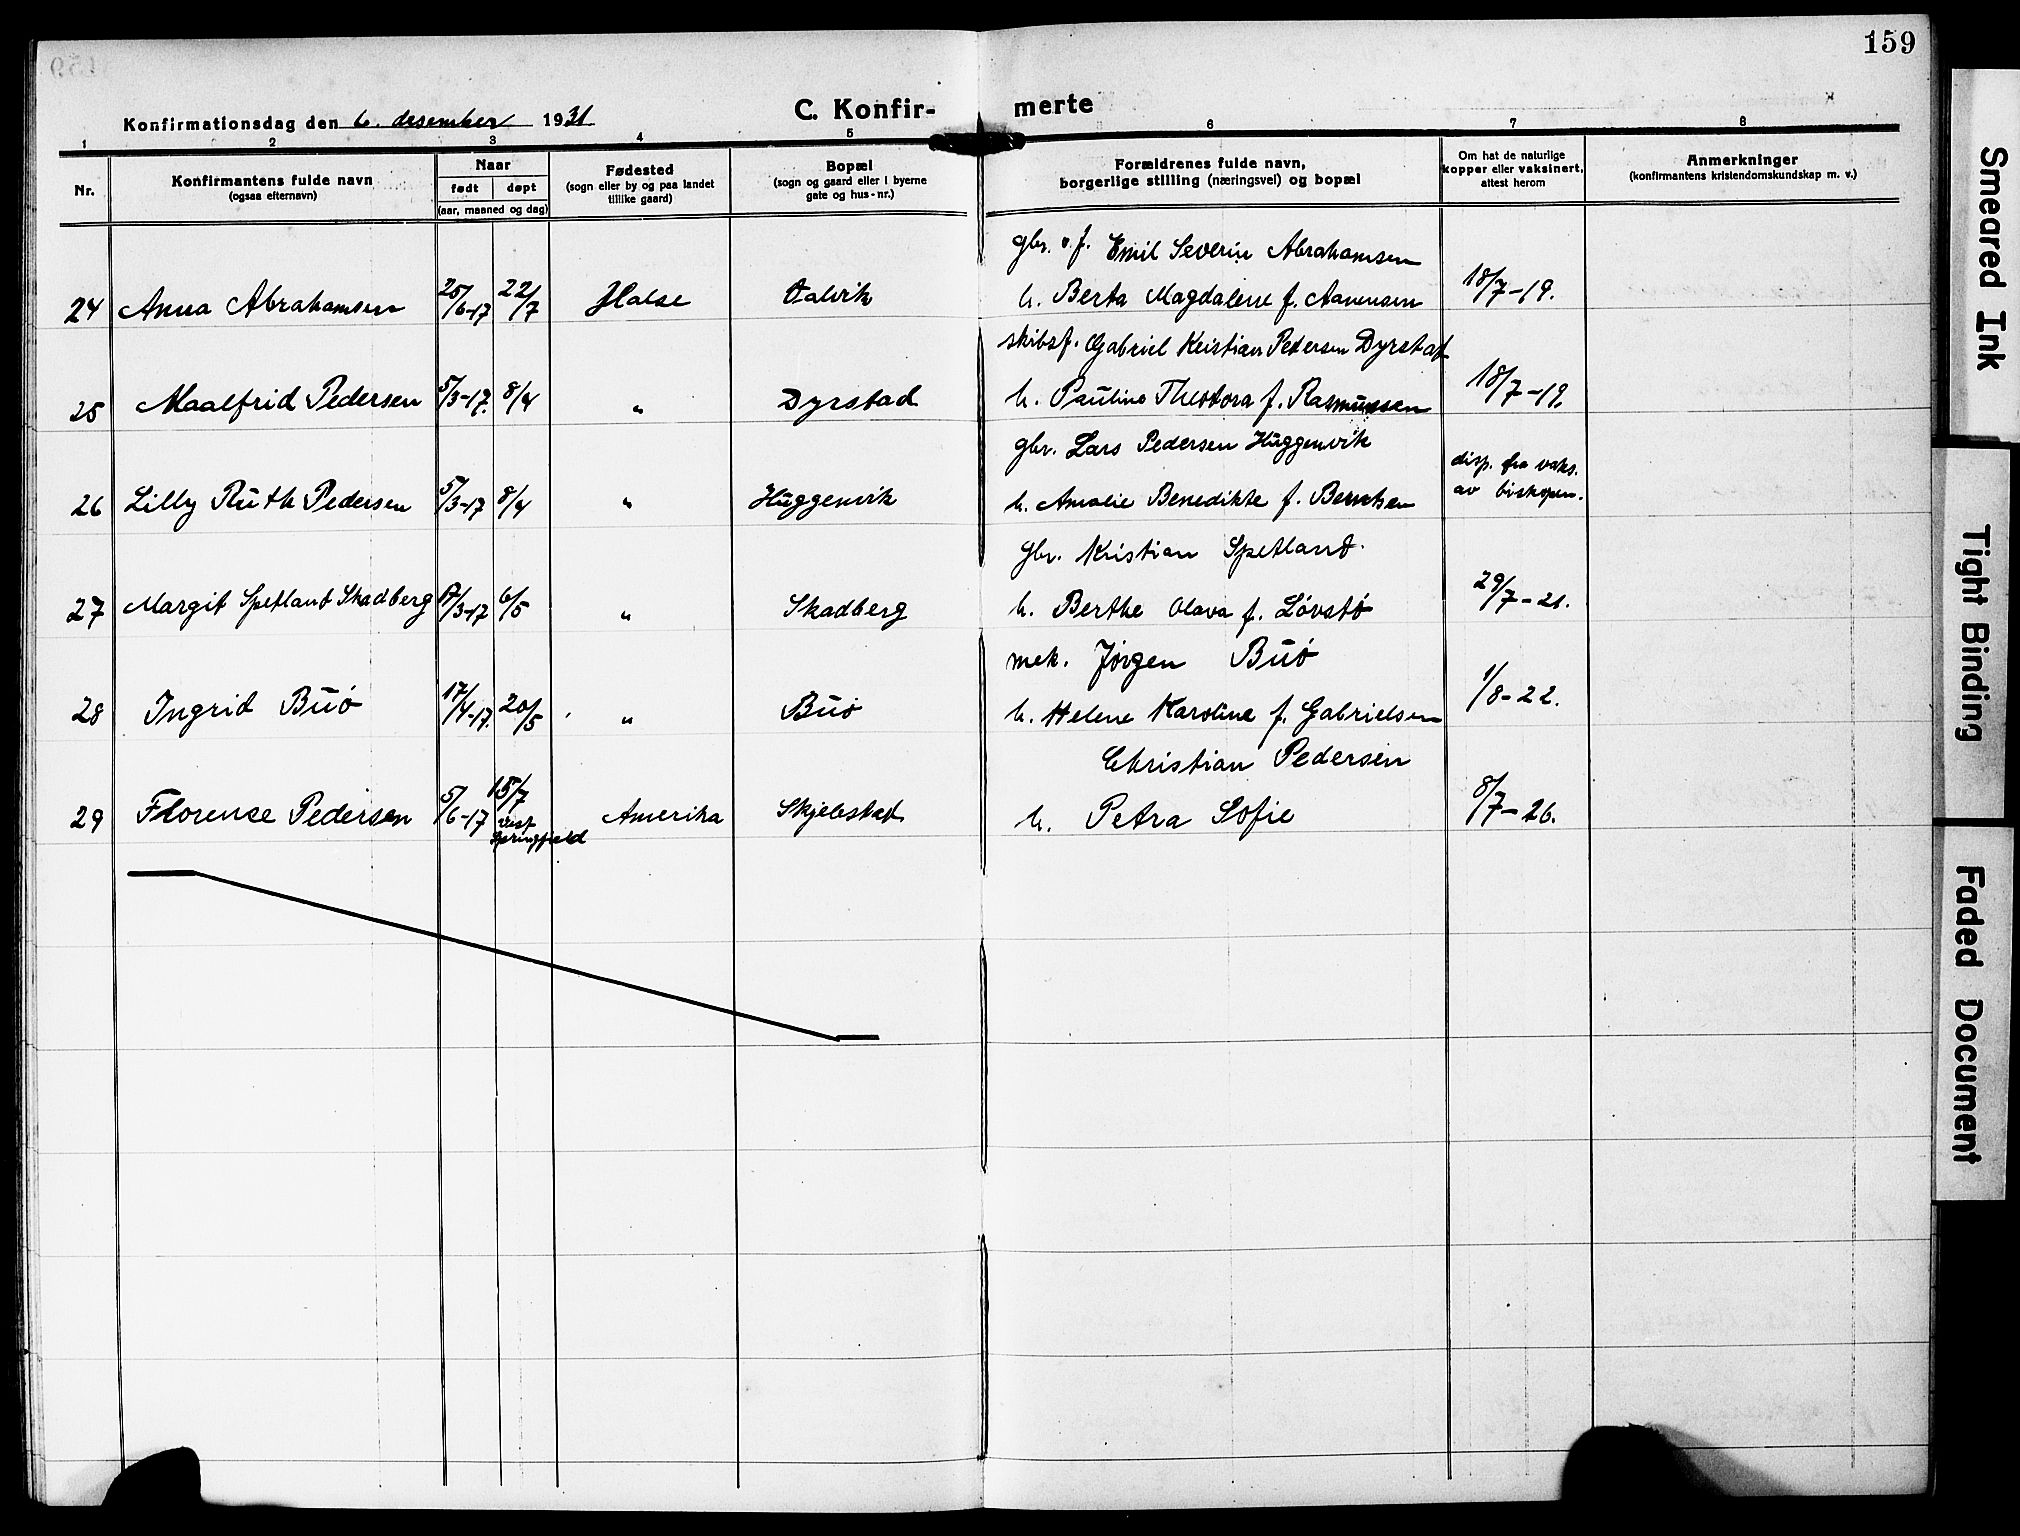 159
Konfirmationsdag den 6. desember 1931
C. Konfir- merte
1 2 3 4 5 6 7 8
Nr.
Konfirmantens fulde navn
(ogsaa efternavn)
Naar
født døpt
(aar, maaned og dag)
Fødested
(sogn eller by og paa landet
tillike gaard)
Bopæl
(sogn og gaard eller i byerne
gate og hus-nr.)
Forældrenes fulde navn,
borgerlige stilling (næringsvei) og bopæl
Om hat de naturlige
kopper eller vaksinert,
attest herom
Anmerkninger
(konfirmantens kristendomskundskap m. v.)
gbr. v. f. Emil Severin Abrahamsen
24 Anna Abrahamsen 25/6-17 22/7 Halse Oalvik h. Berta Magdalene f. Aanensen 18/7-19.
skibsf. Gabriel Kristian Pedersen Dyrstad
25 Maalfrid Pedersen 5/3-17. 8/4 " Dyrstad h. Pauline Theodora f. Rasmussen 18/7-19.
gbr. Lars Pedersen Huggenvik
26 Lilly Ruth Pedersen 5/3-17 8/4 " Huggenvik h. Amalie Benedikte f. Berntsen disp. fra vaks.
av biskopen.
gbr. Kristian Spetland.
27 Margit Spetland Skadberg 17/3-17 6/5 " Skadberg h. Berthe Olava f. Løvstø 29/7-21.
mek. Jørgen Buø
28 Ingrid Buø 17/4-17. 20/5 " Buø h. Helene Karoline f. Gabrielsen 1/8-22.
Christian Pedersen
29 Florense Pedersen 5/6-17 15/7 Amerika Skjelestad h. Petra Sofie 8/7-26.
Vest
Springfield
Smeared Ink
Tight Binding
Faded Document